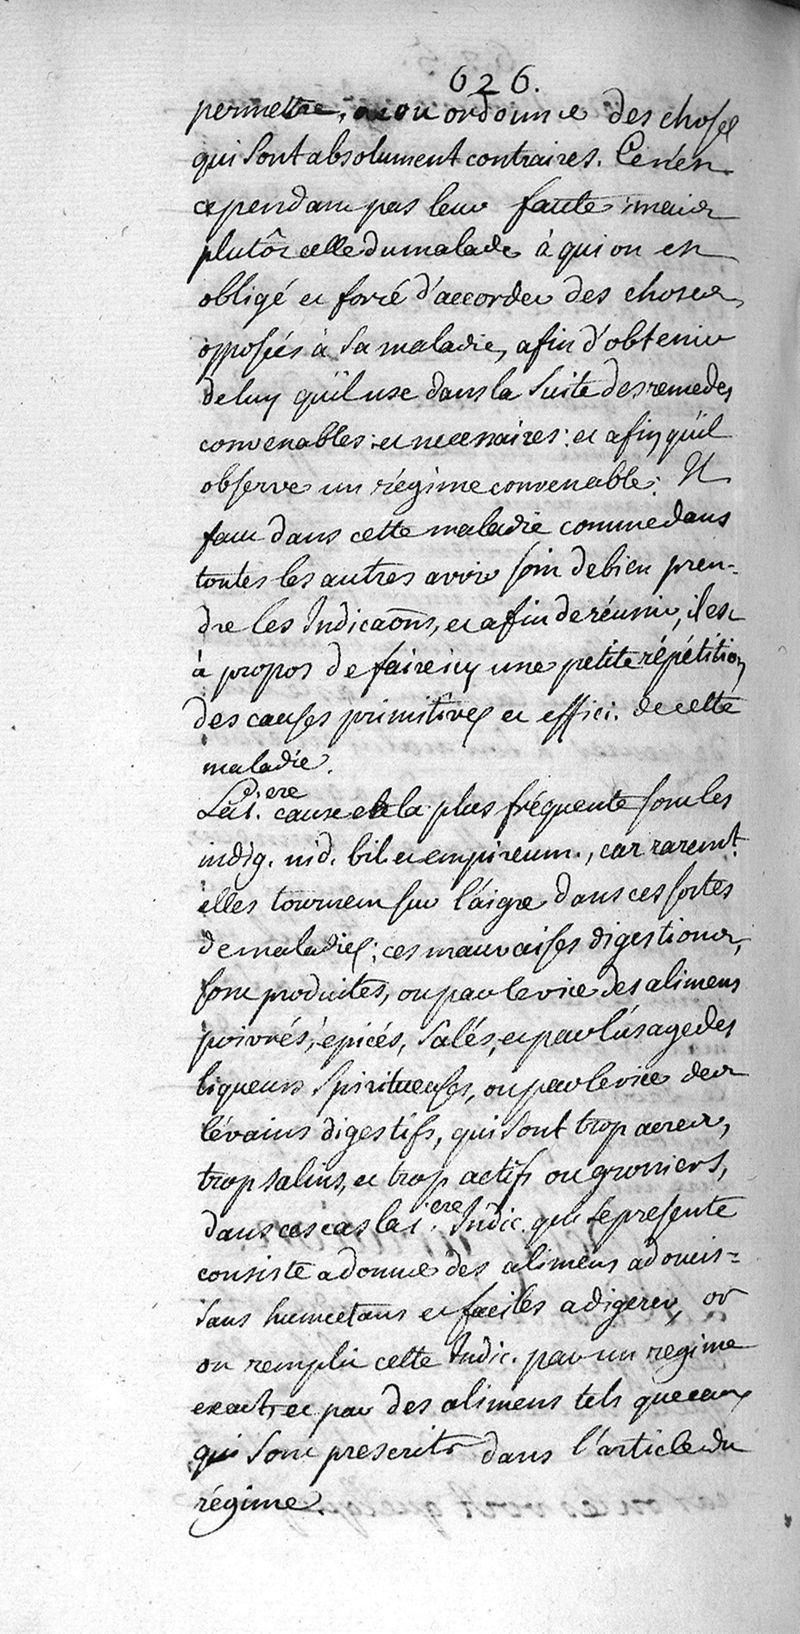 626.
permettre, ou ordonne des choses
qui sont absolument contraires. Ce n'est
cependant pas leur faute mais
plutôt celle du malade à qui on est
obligé et forcé d'accorder des choses
opposés à sa maladie, afin d'obtenir
de luy qu'il use dans la suite des remedes
convenables et necessaires: et afin qu'il
observe un régime convenable. Il
faut dans cette maladie comme dans
toutes les autres avoir soin de bien pren-
dre les Indicaons, et afin de réunir, il est
à propos de faire icy une petite répétition
des causes primitives et effici. de cette
maladie.
La 1.ere cause et la plus fréquente sont les
indig. nid. bil. et empireum., car raremt.
elles tournent sur l'aigre dans ces sortes
de maladies; ces mauvaises digestions,
sont produites, ou par le vice des alimens
poivrés, épicés, salés, et par l'usage des
liqueurs spiritueuses, ou par le vice des
lévains digestifs, qui sont trop acres,
trop salins, et trop actifs ou grossiers,
dans ces cas la 1.ere Indic. qui se presente
consiste a donner des alimens adoucis=
sans humectans et faciles a digerer, or
on remplit cette Indic. par un regime
exact, et par des alimens tels que ceux
qui sont prescrits dans l'article du
régime.